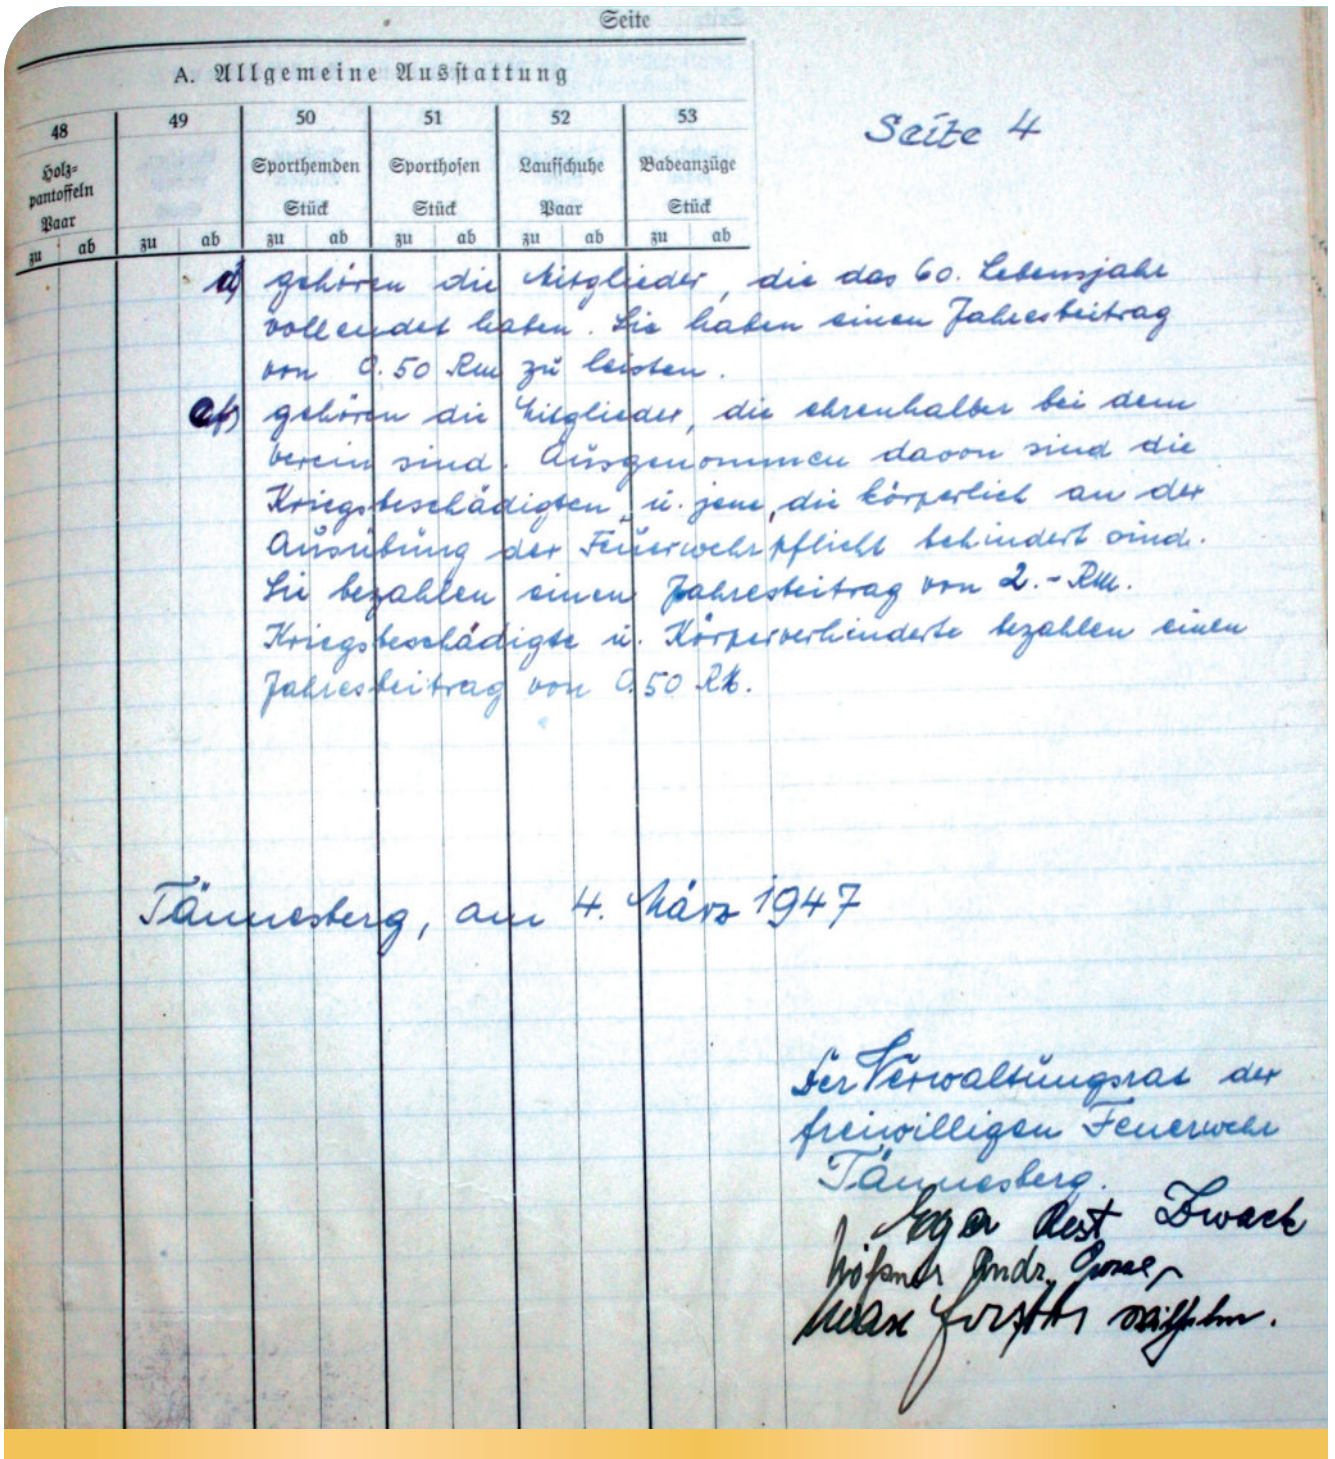 Seite
A. Allgemeine Ausstattung
48 49 50 51 52 53
Holz-
pantoffeln Sporthemden Sporthosen Laufschuhe Badeanzüge
Paar Stück Stück Paar Stück
zu ab zu ab zu ab zu ab zu ab zu ab
Seite 4
gehören die Mitglieder, die das 60. Lebensjahr
vollendet haben. Sie haben einen Jahresbeitrag
von 0.50 Rm zu leisten.
gehören die Mitglieder, die ehrenhalber bei dem
Verein sind. Ausgenommen davon sind die
Kriegsbeschädigten u. jene, die körperlich an der
Ausübung der Feuerwehrpflicht behindert sind.
Sie bezahlen einen Jahresbeitrag von 2.- Rm.
Kriegsbeschädigte u. Körperverhinderte bezahlen einen
Jahresbeitrag von 0.50 RM.
Tännesberg, am 4. März 1947
Der Verwaltungsrat der
freiwilligen Feuerwehr
Tännesberg.
Eger
Andr.
Wilhelm.